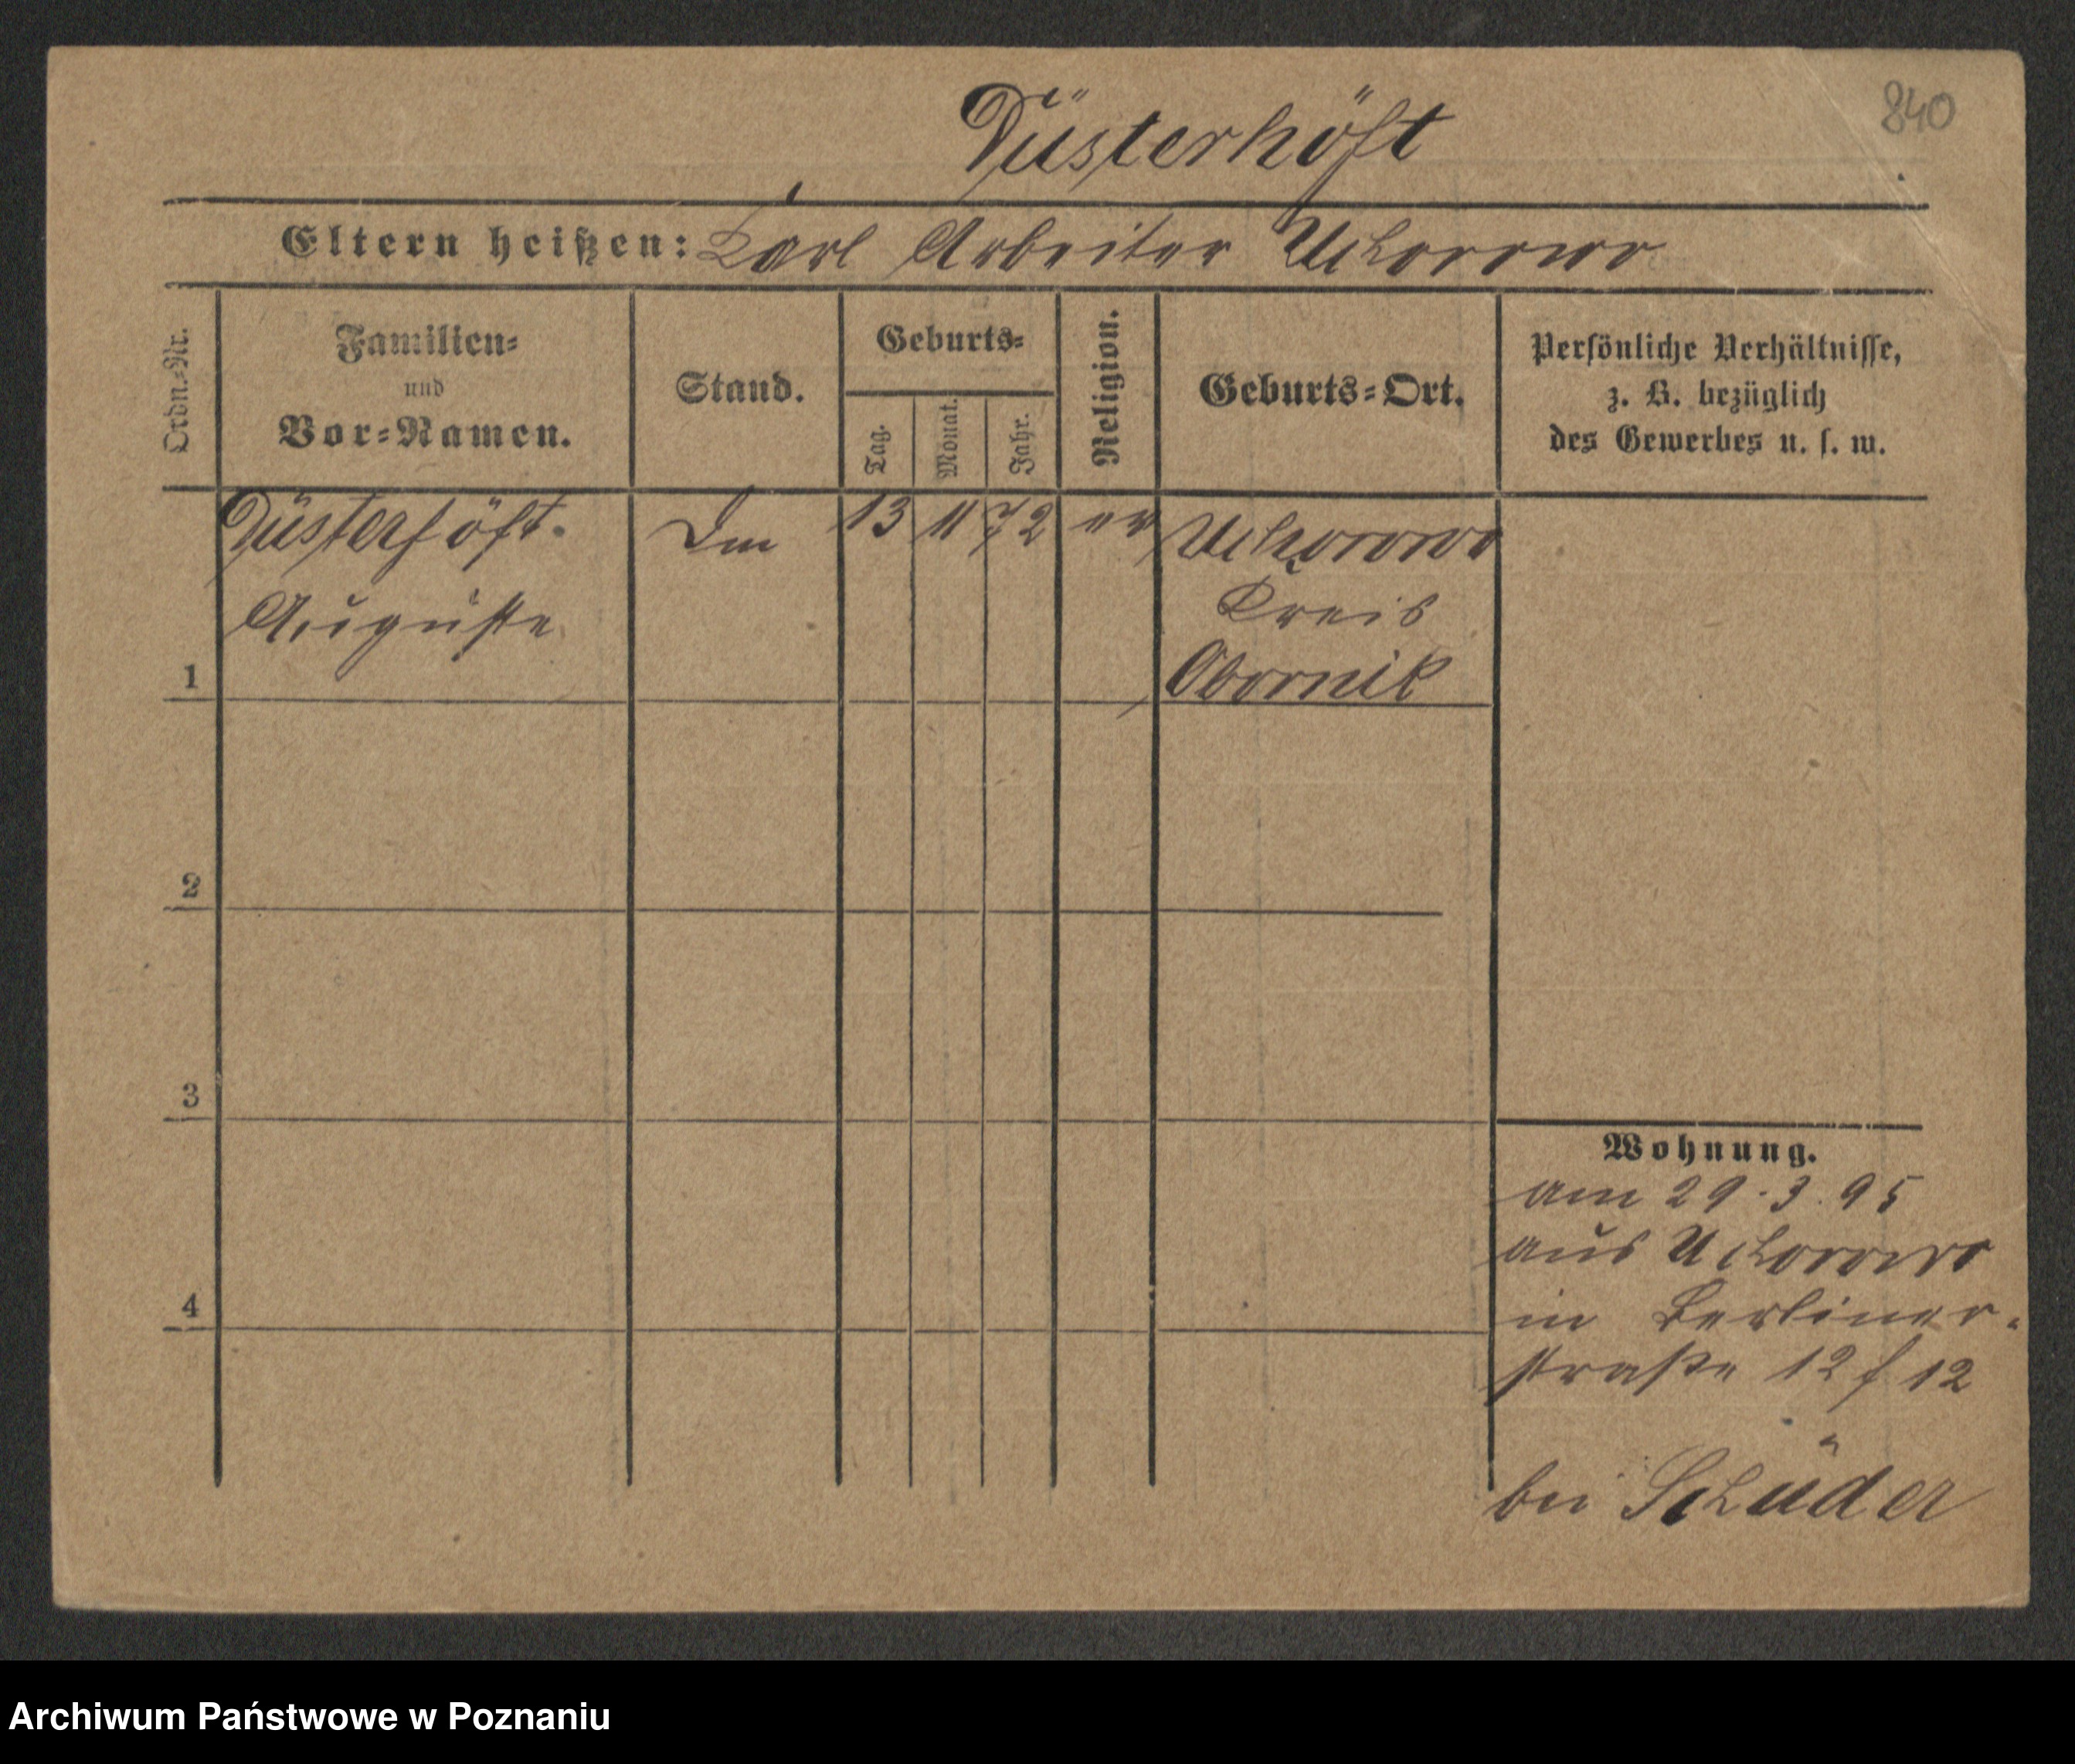 840
Düsterhöft
Eltern heißen: Karl Arbeiter Uchorowo
Ordn.-Nr.
Familien-
und
Vor-Namen.
Stand.
Geburts-
Tag.
Monat.
Jahr.
Religion.
Geburts-Ort.
Persönliche Verhältnisse,
z. B. bezüglich
des Gewerbes u. s. w.
1
Düsterhöft
Auguste
13
11
72
ev
Uchorowo
Kreis
Obornik
2
3
4
Wohnung.
am 29.3.95
aus Uchorowo
in Berliner-
straße 12 f 12
bei Schüder
Archiwum Państwowe w Poznaniu